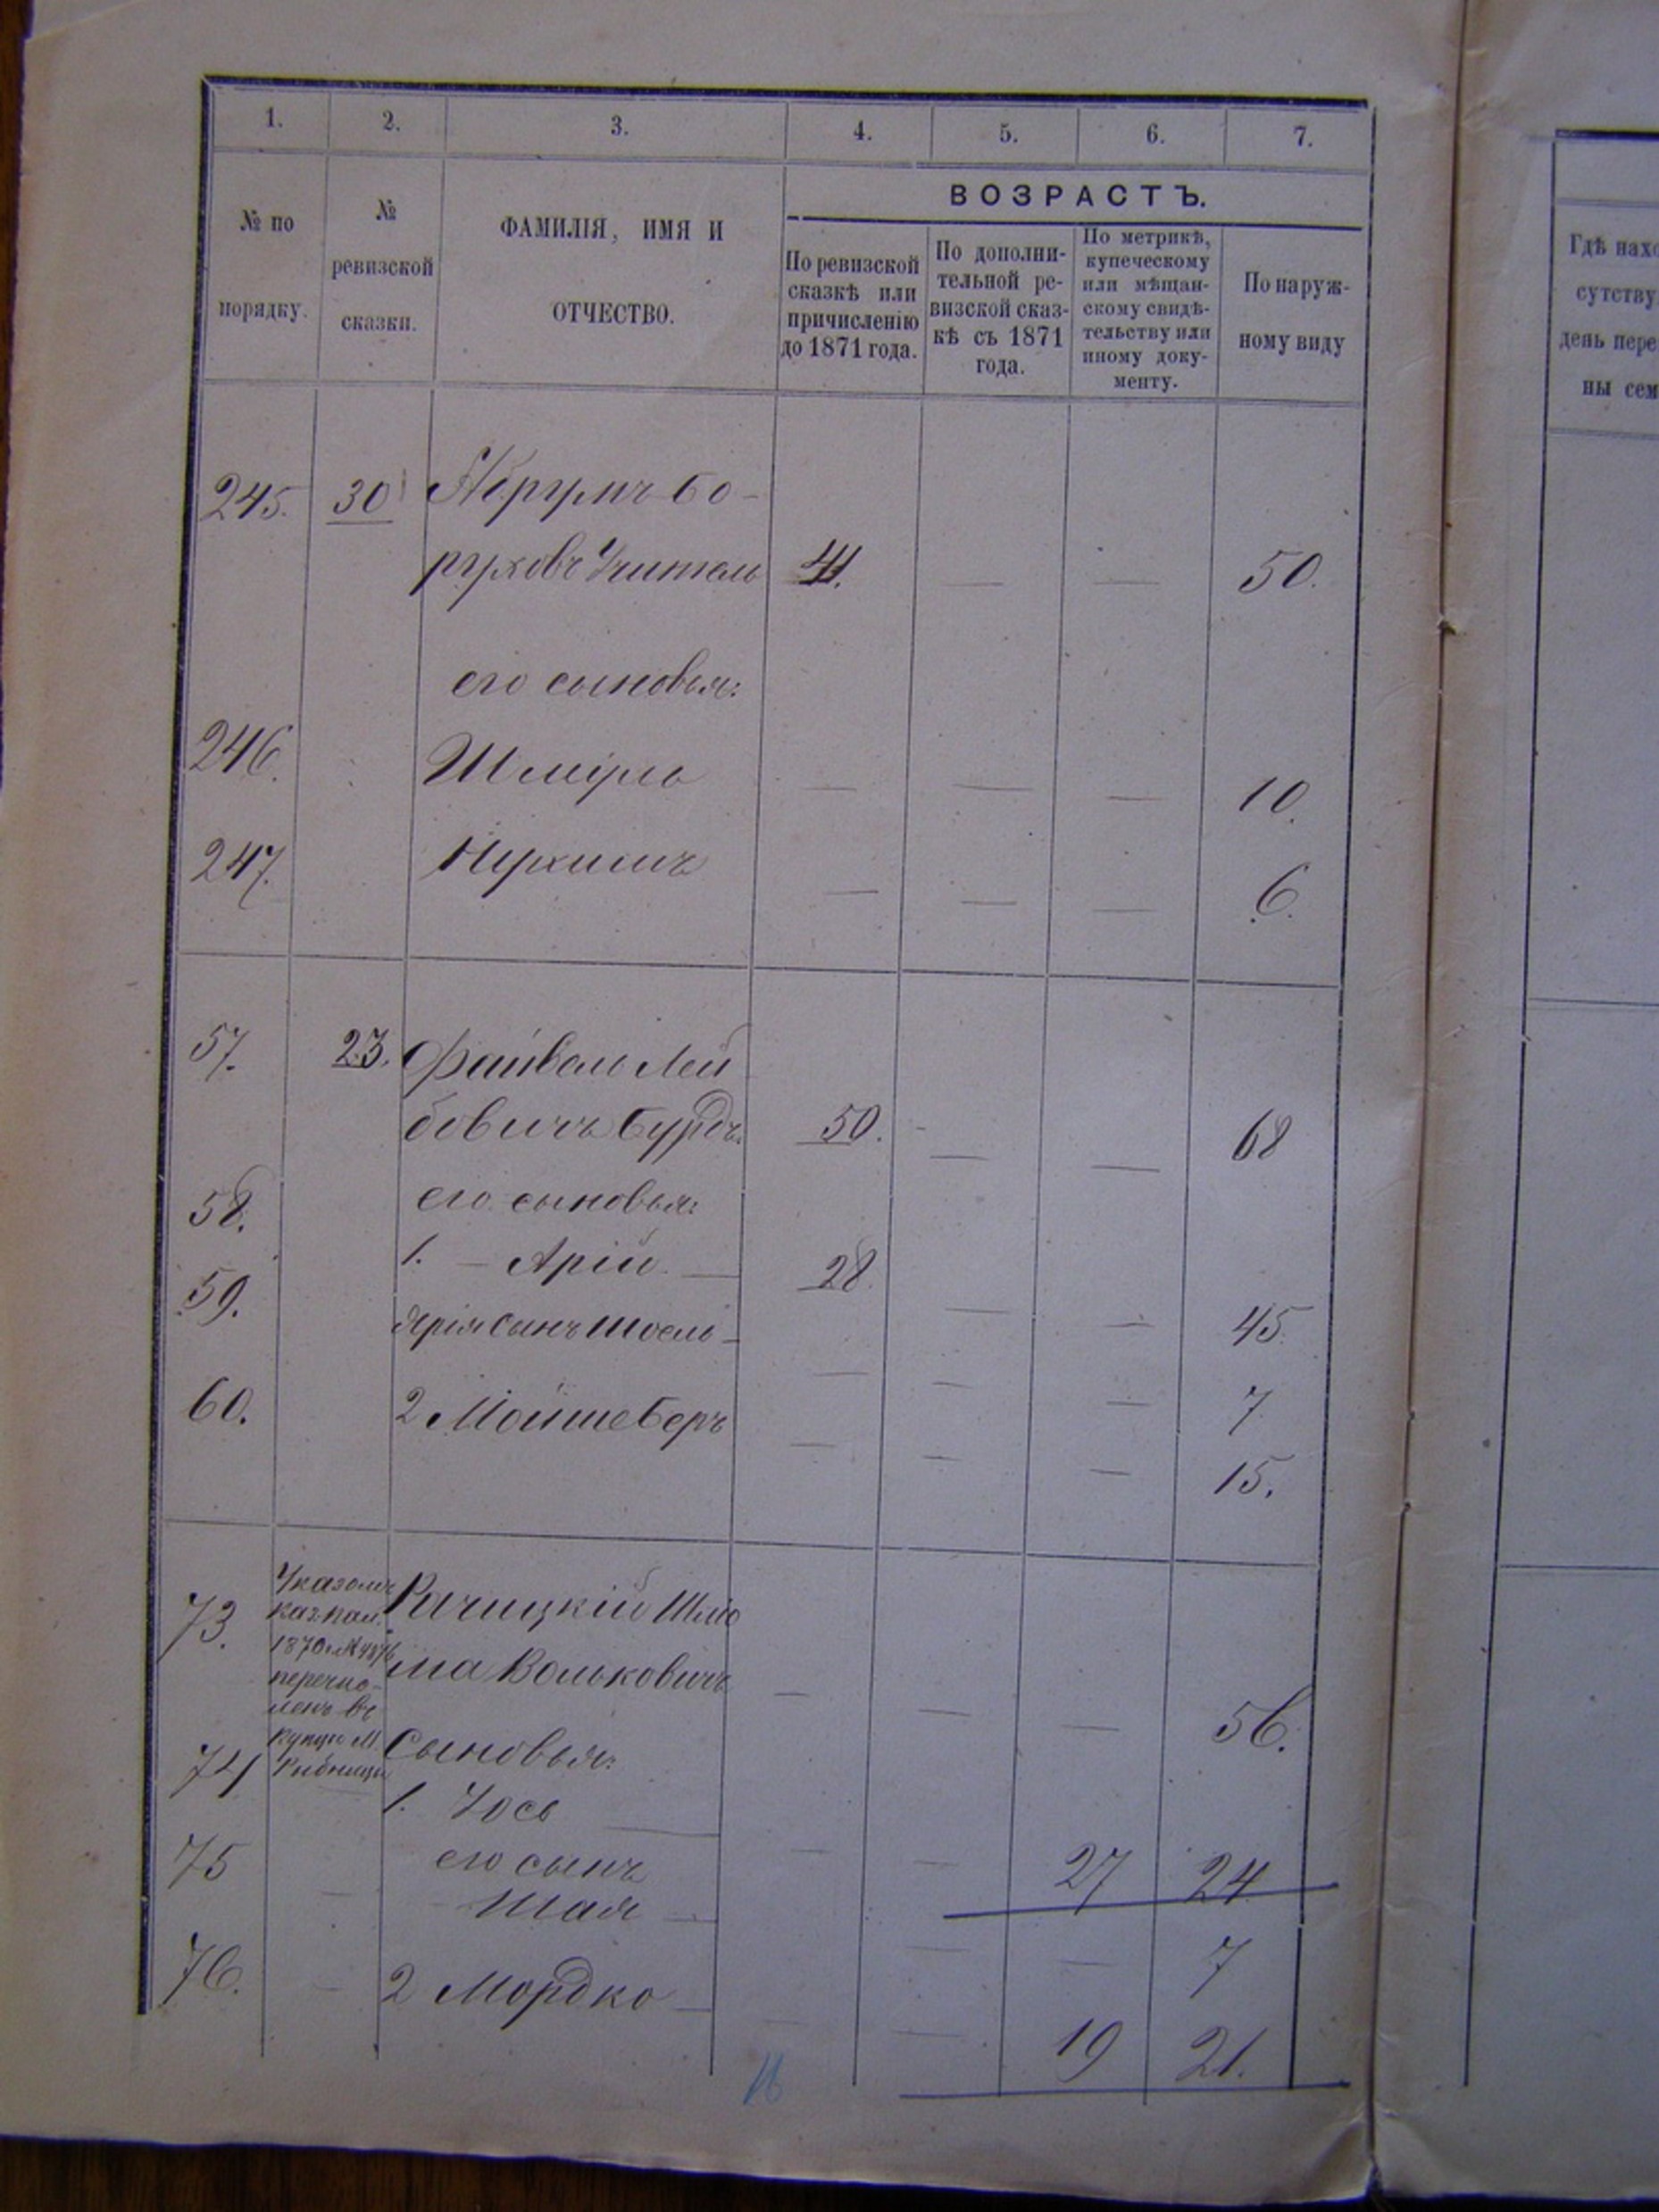 1. 2. 3. 4. 5. 6. 7.
№ по порядку.
№ ревизской сказки.
ФАМИЛІЯ, ИМЯ И ОТЧЕСТВО.
ВОЗРАСТЪ.
По ревизской сказкѣ или причисленію до 1871 года.
По дополнительной ревизской сказкѣ съ 1871 года.
По метрикѣ, купеческому или мѣщанскому свидѣтельству или иному документу.
По наружному виду
Гдѣ нахо
сутству
день пере
ны сем
245. 30 Абрумъ Бо-
руховъ Учитель 41. — — 50.
его сыновья:
246. Шмѣль — — — 10.
247. Нухимъ — — — 6.
57. 23. Файвель Лей
бовичъ Бурдъ. 50. — — 68
58. его сыновья:
1. — Арій — 28 — — 45.
59. Арія сынъ Шоель — — — — 7
60. 2 Мойше Беръ — — — 15.
73. Указомъ Рачицкій Шлio
каз. пал.
1870 г. № 4876 ма Вольковичъ — — — 56.
перечис-
ленъ въ
купцы М.
Рыбницы
74 Сыновья:
1. Іось — — 27 24
75 — его сынъ
Шая — — — 7
76. — 2 Мордко — — — 19 21.
16